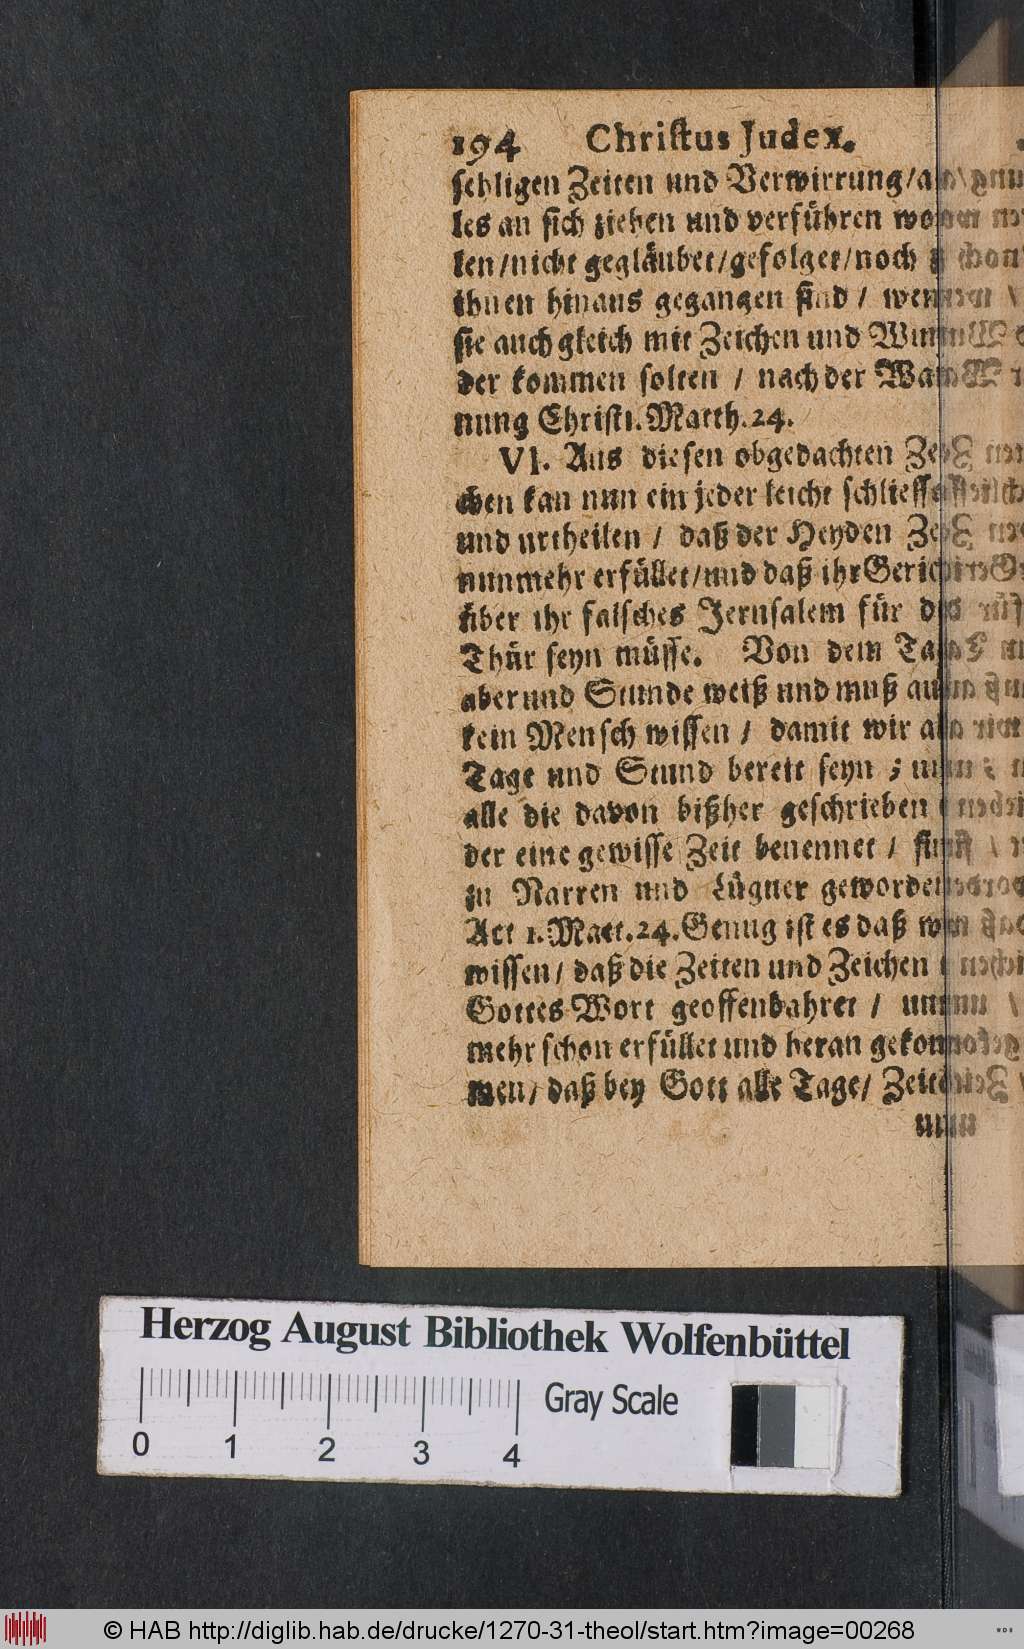 194 Christus Judex.
sehligen Zeiten und Verwirrung/al
les an sich ziehen und verführen wol
len/nicht gegläubet/gefolget/noch
ihnen hinaus gegangen sind / wenn
sie auch gleich mit Zeichen und Wun
der kommen solten / nach der War
nung Christi. Matth. 24.
VI. Aus diesen obgedachten Zei
chen kan nun ein jeder leicht schliessen
und urtheilen / daß der Heyden Zeit
nunmehr erfüllet/und daß ihr Gericht
über ihr falsches Jerusalem für der
Thür seyn müsse. Von dem Tage
aber und Stunde weiß und muß auch
kein Mensch wissen / damit wir alle
Tage und Stund bereit seyn ; und
alle die davon bißher geschrieben
der eine gewisse Zeit benennet / sind
zu Narren und Lügner geworden
Act 1. Matt. 24. Genug ist es daß wir
wissen / daß die Zeiten und Zeichen in
Gottes Wort geoffenbahret / nun
mehr schon erfüllet und heran gekom
men / daß bey Gott alle Tage / Zeit
Herzog August Bibliothek Wolfenbüttel
0 1 2 3 4 Gray Scale
© HAB http://diglib.hab.de/drucke/1270-31-theol/start.htm?image=00268